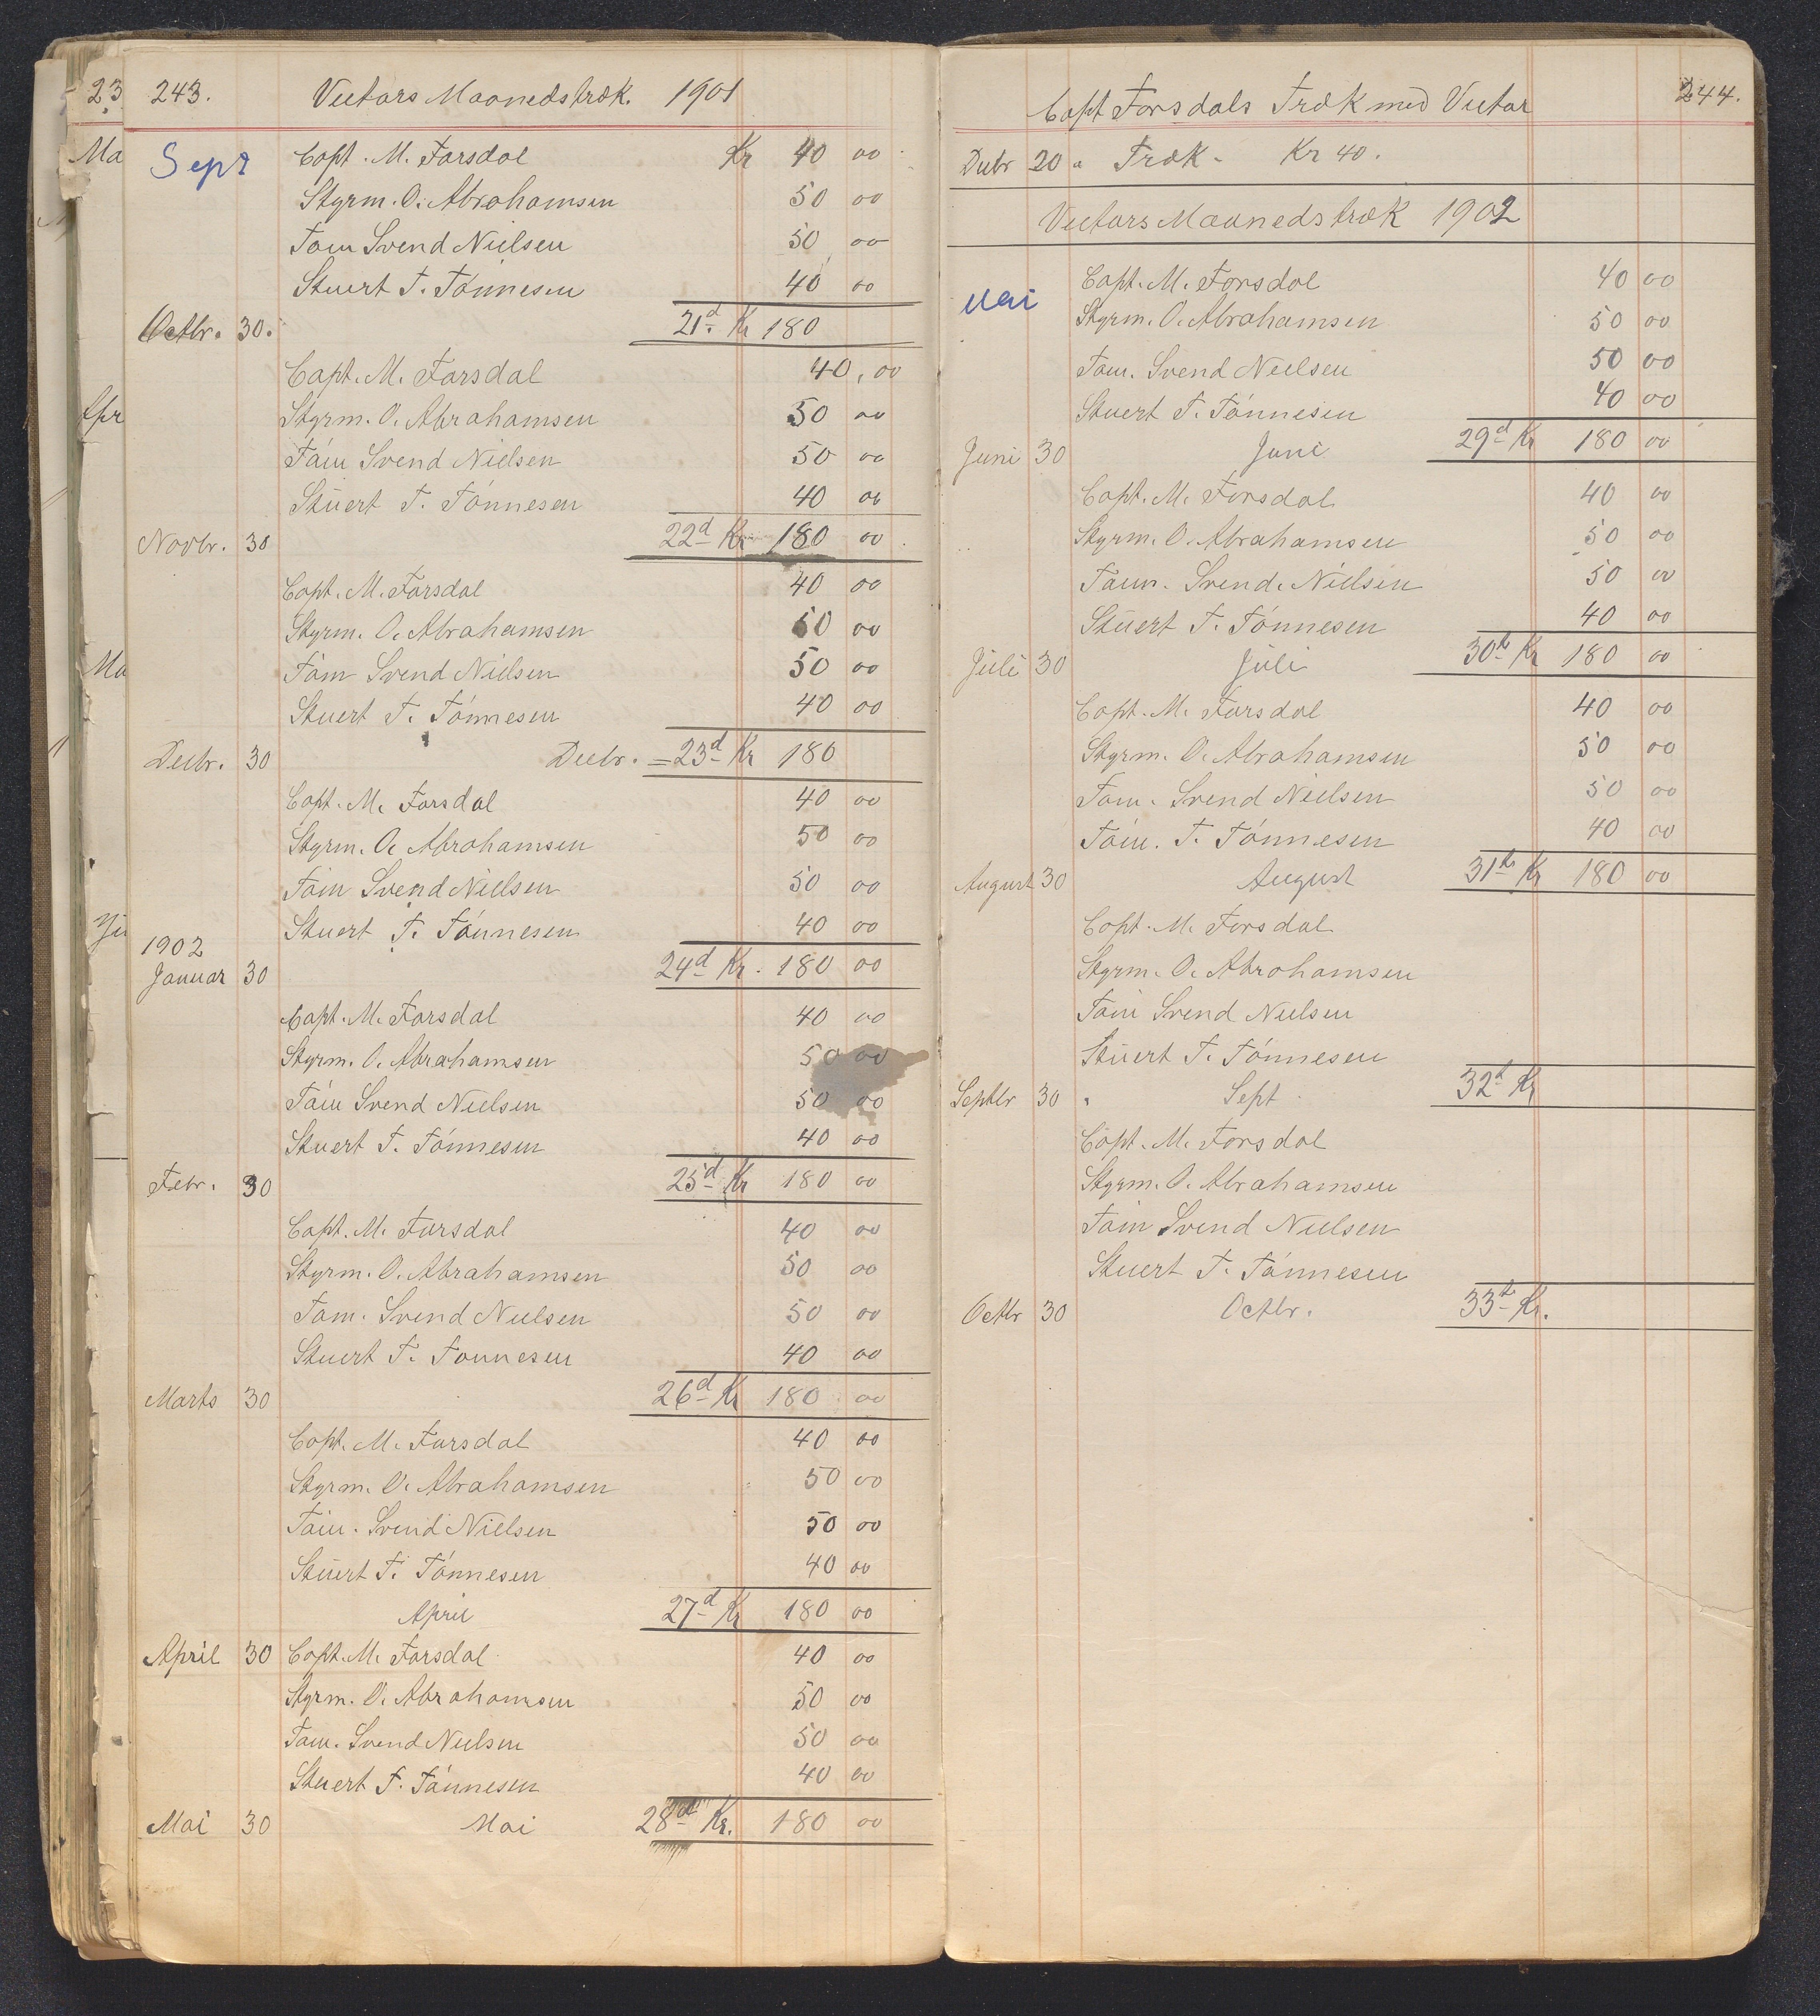 23
Ma
Apr
Ma
243. Victors Maanedstræk. 1901
Sept Capt. M. Farsdal Kr 40 00
Styrm. O. Abrahamsen 50 00
Tøm Svend Nielsen 50 00
Stuert T. Tónnesen 40 00
Octbr. 30. 21d Kr 180
Capt. M. Farsdal 40,00
Styrm. O. Abrahamsen 50 00
Tøm Svend Nielsen 50 00
Stuert T. Tónnesen 40 00
Novbr. 30 22d Kr 180 00
Capt. M. Farsdal 40 00
Styrm. O. Abrahamsen 50 00
Tøm Svend Nielsen 50 00
Stuert T. Tónnesen 40 00
Decbr. 30 Decbr. = 23d Kr 180
Capt. M. Farsdal 40 00
Styrm. O. Abrahamsen 50 00
Tøm Svend Nielsen 50 00
Stuert T. Tónnesen 40 00
1902
Januar 30 24d Kr. 180 00
Capt. M. Farsdal 40 00
Styrm. O. Abrahamsen 50 00
Tøm Svend Nielsen 50 00
Stuert T. Tónnesen 40 00
Febr. 30 25d Kr 180 00
Capt. M. Farsdal 40 00
Styrm. O. Abrahamsen 50 00
Tøm. Svend Nielsen 50 00
Stuert T. Tonnesen 40 00
Marts 30 26d Kr 180 00
Capt. M. Farsdal 40 00
Styrm. O. Abrahamsen 50 00
Tøm. Svend Nielsen 50 00
Stuert T. Tónnesen 40 00
April 27d Kr 180 00
April 30 Capt. M. Farsdal 40 00
Styrm. O. Abrahamsen 50 00
Tøm. Svend Nielsen 50 00
Stuert T. Tónnesen 40 00
Mai 30 Mai 28d Kr. 180 00
Capt Forsdals Træk med Victor 244.
Decbr 20 " Træk - Kr 40.
Victors Maanedstræk 1902
Mai Capt. M. Forsdal 40 00
Styrm. O. Abrahamsen 50 00
Tøm. Svend Nielsen 50 00
Stuert T. Tónnesen 40 00
Juni 30 Juni 29d Kr 180 00
Capt. M. Forsdal 40 00
Styrm. O. Abrahamsen 50 00
Tøm. Svend. Nielsen 50 00
Stuert T. Tónnesen 40 00
Juli 30 Juli 30te Kr 180 00
Capt. M. Farsdal 40 00
Styrm. O. Abrahamsen 50 00
Tøm. Svend Nielsen 50 00
Tøm. T. Tónnesen 40 00
August 30 August 31te Kr 180 00
Capt. M. Forsdal
Styrm. O. Abrahamsen
Tøm Svend Nielsen
Stuert T. Tónnesen
Septbr 30 " Sept 32t Kr
Capt. M. Forsdal
Styrm. O. Abrahamsen
Tøm Svend Nielsen
Stuert T. Tónnesen
Octbr 30 Octbr. 33t Kr.